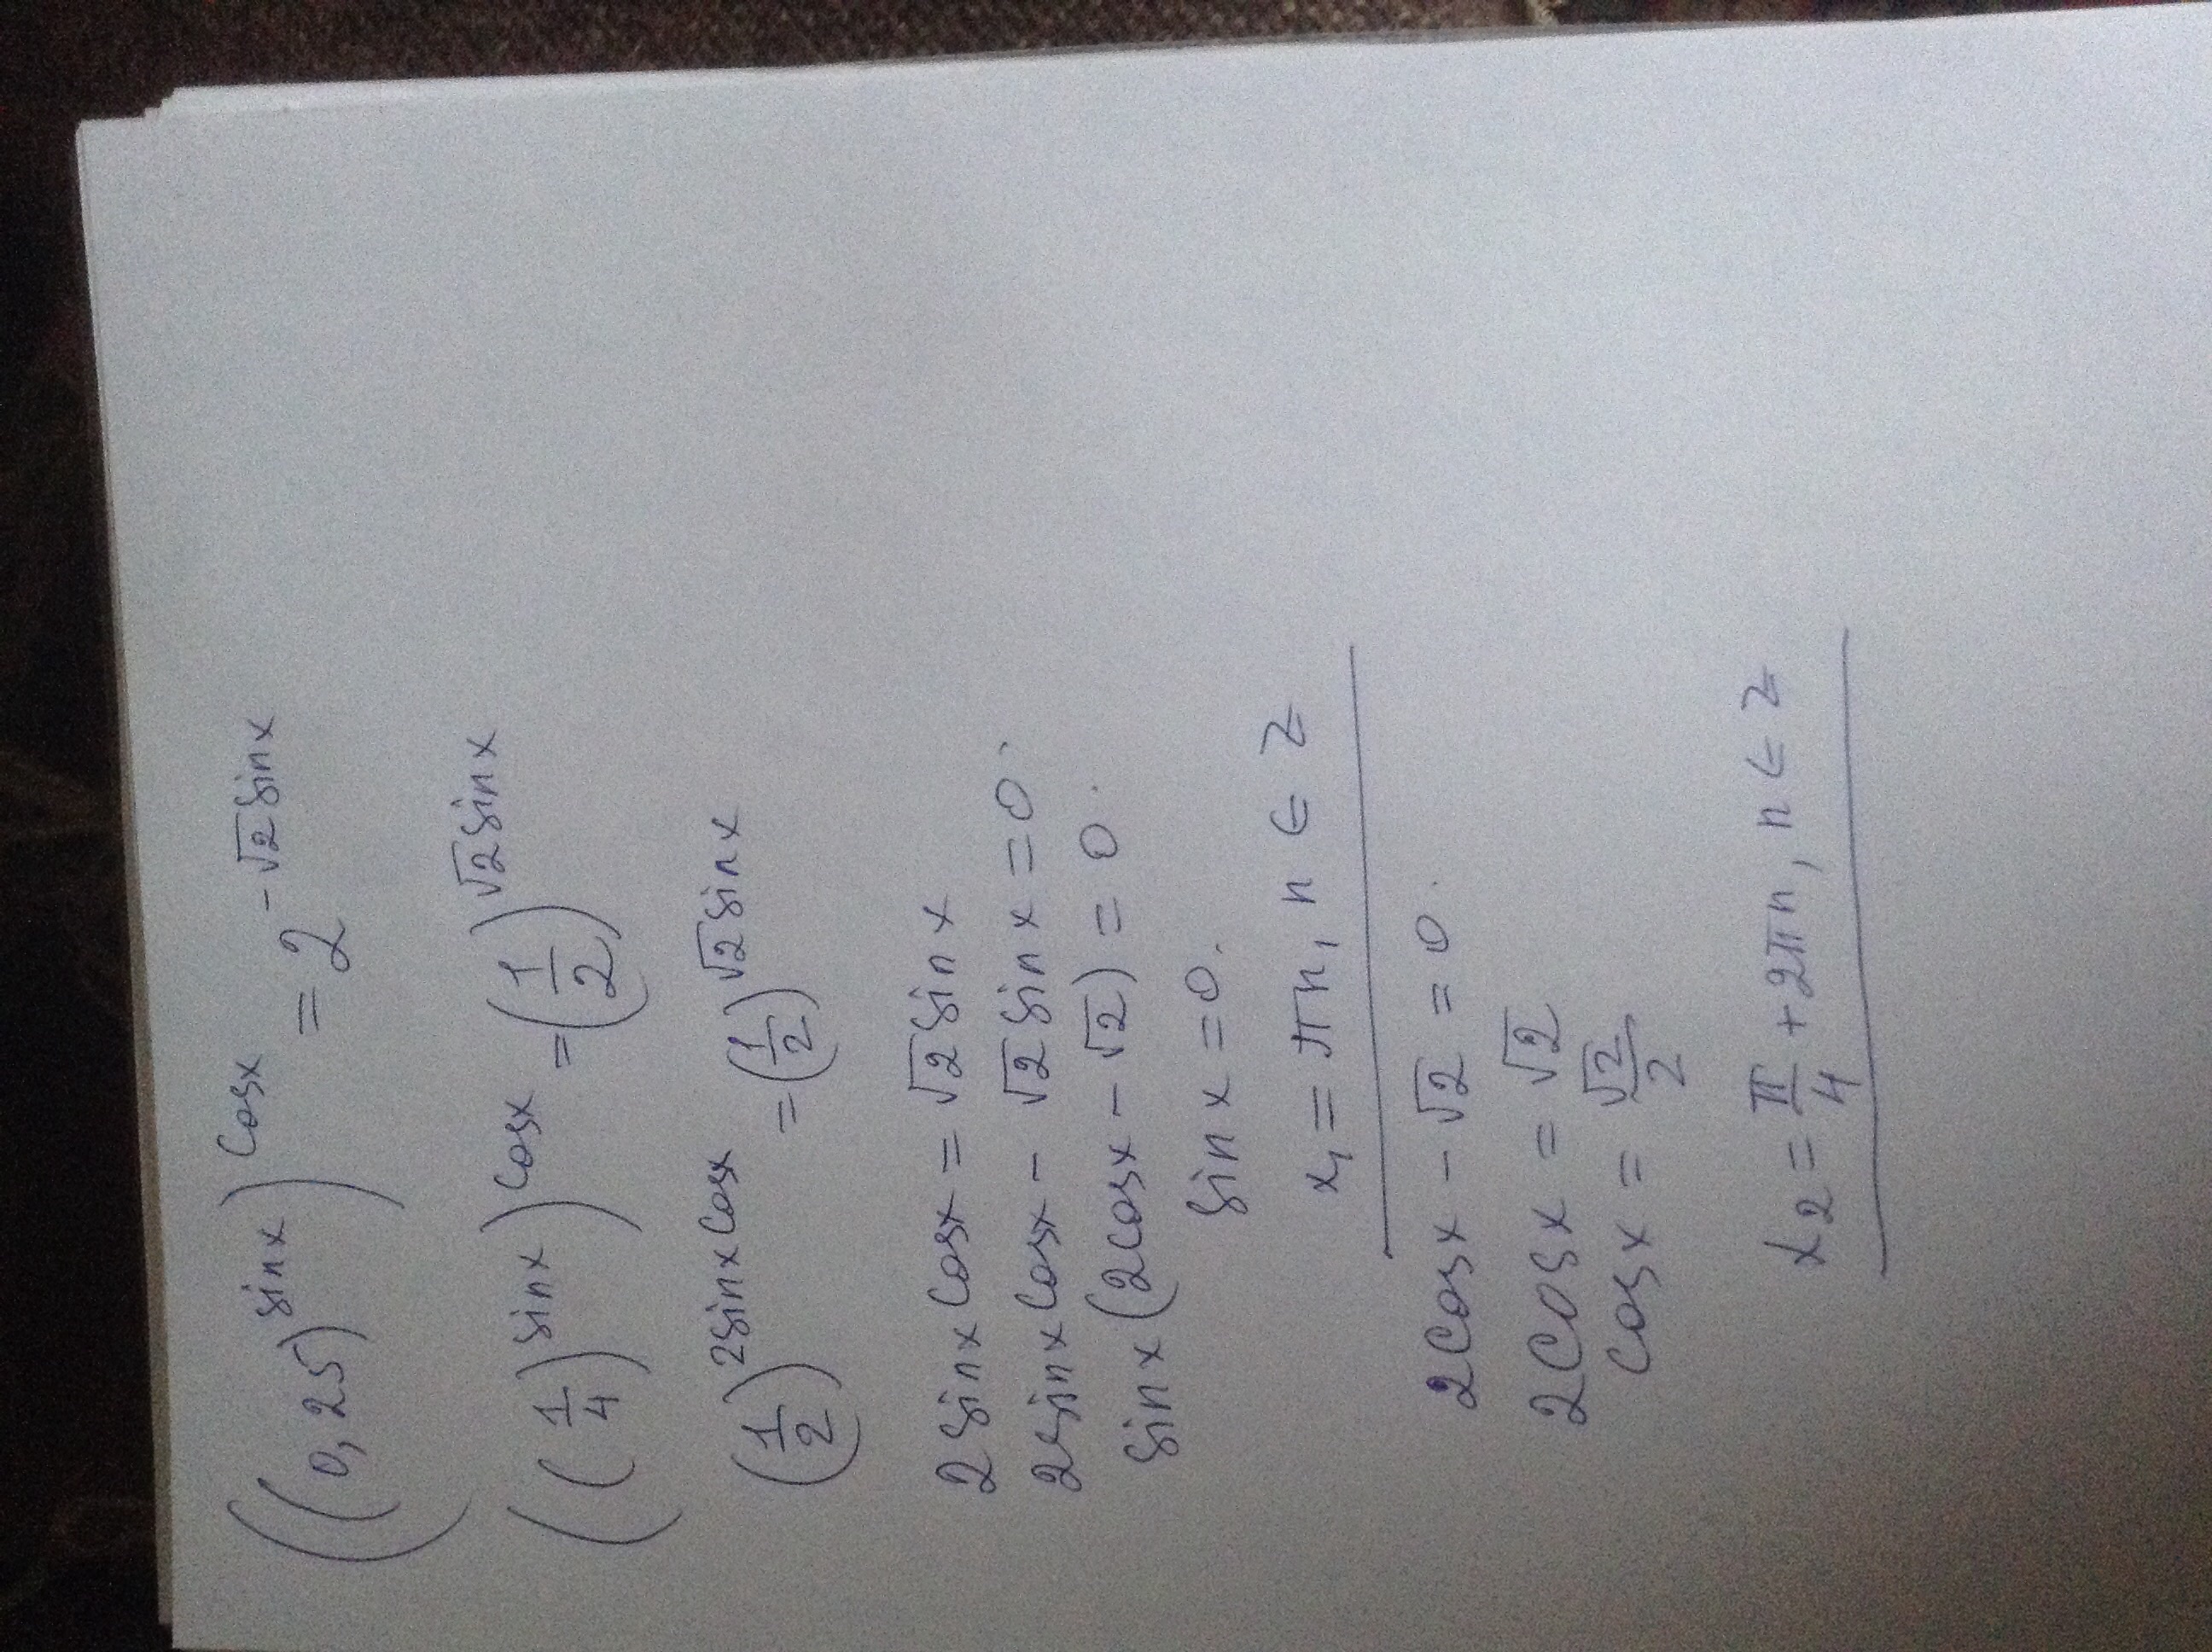 ((0,25)^sinx)^cosx = 2^-√2sinx
((1/4)^sinx)^cosx = (1/2)^√2sinx
(1/2)^2sinxcosx = (1/2)^√2sinx
2sinxcosx = √2sinx
2sinxcosx - √2sinx = 0.
sinx(2cosx - √2) = 0.
sinx = 0.
x₁ = πn, n ∈ Z
2cosx - √2 = 0.
2cosx = √2
cosx = √2/2
x₂ = π/4 + 2πn, n ∈ Z